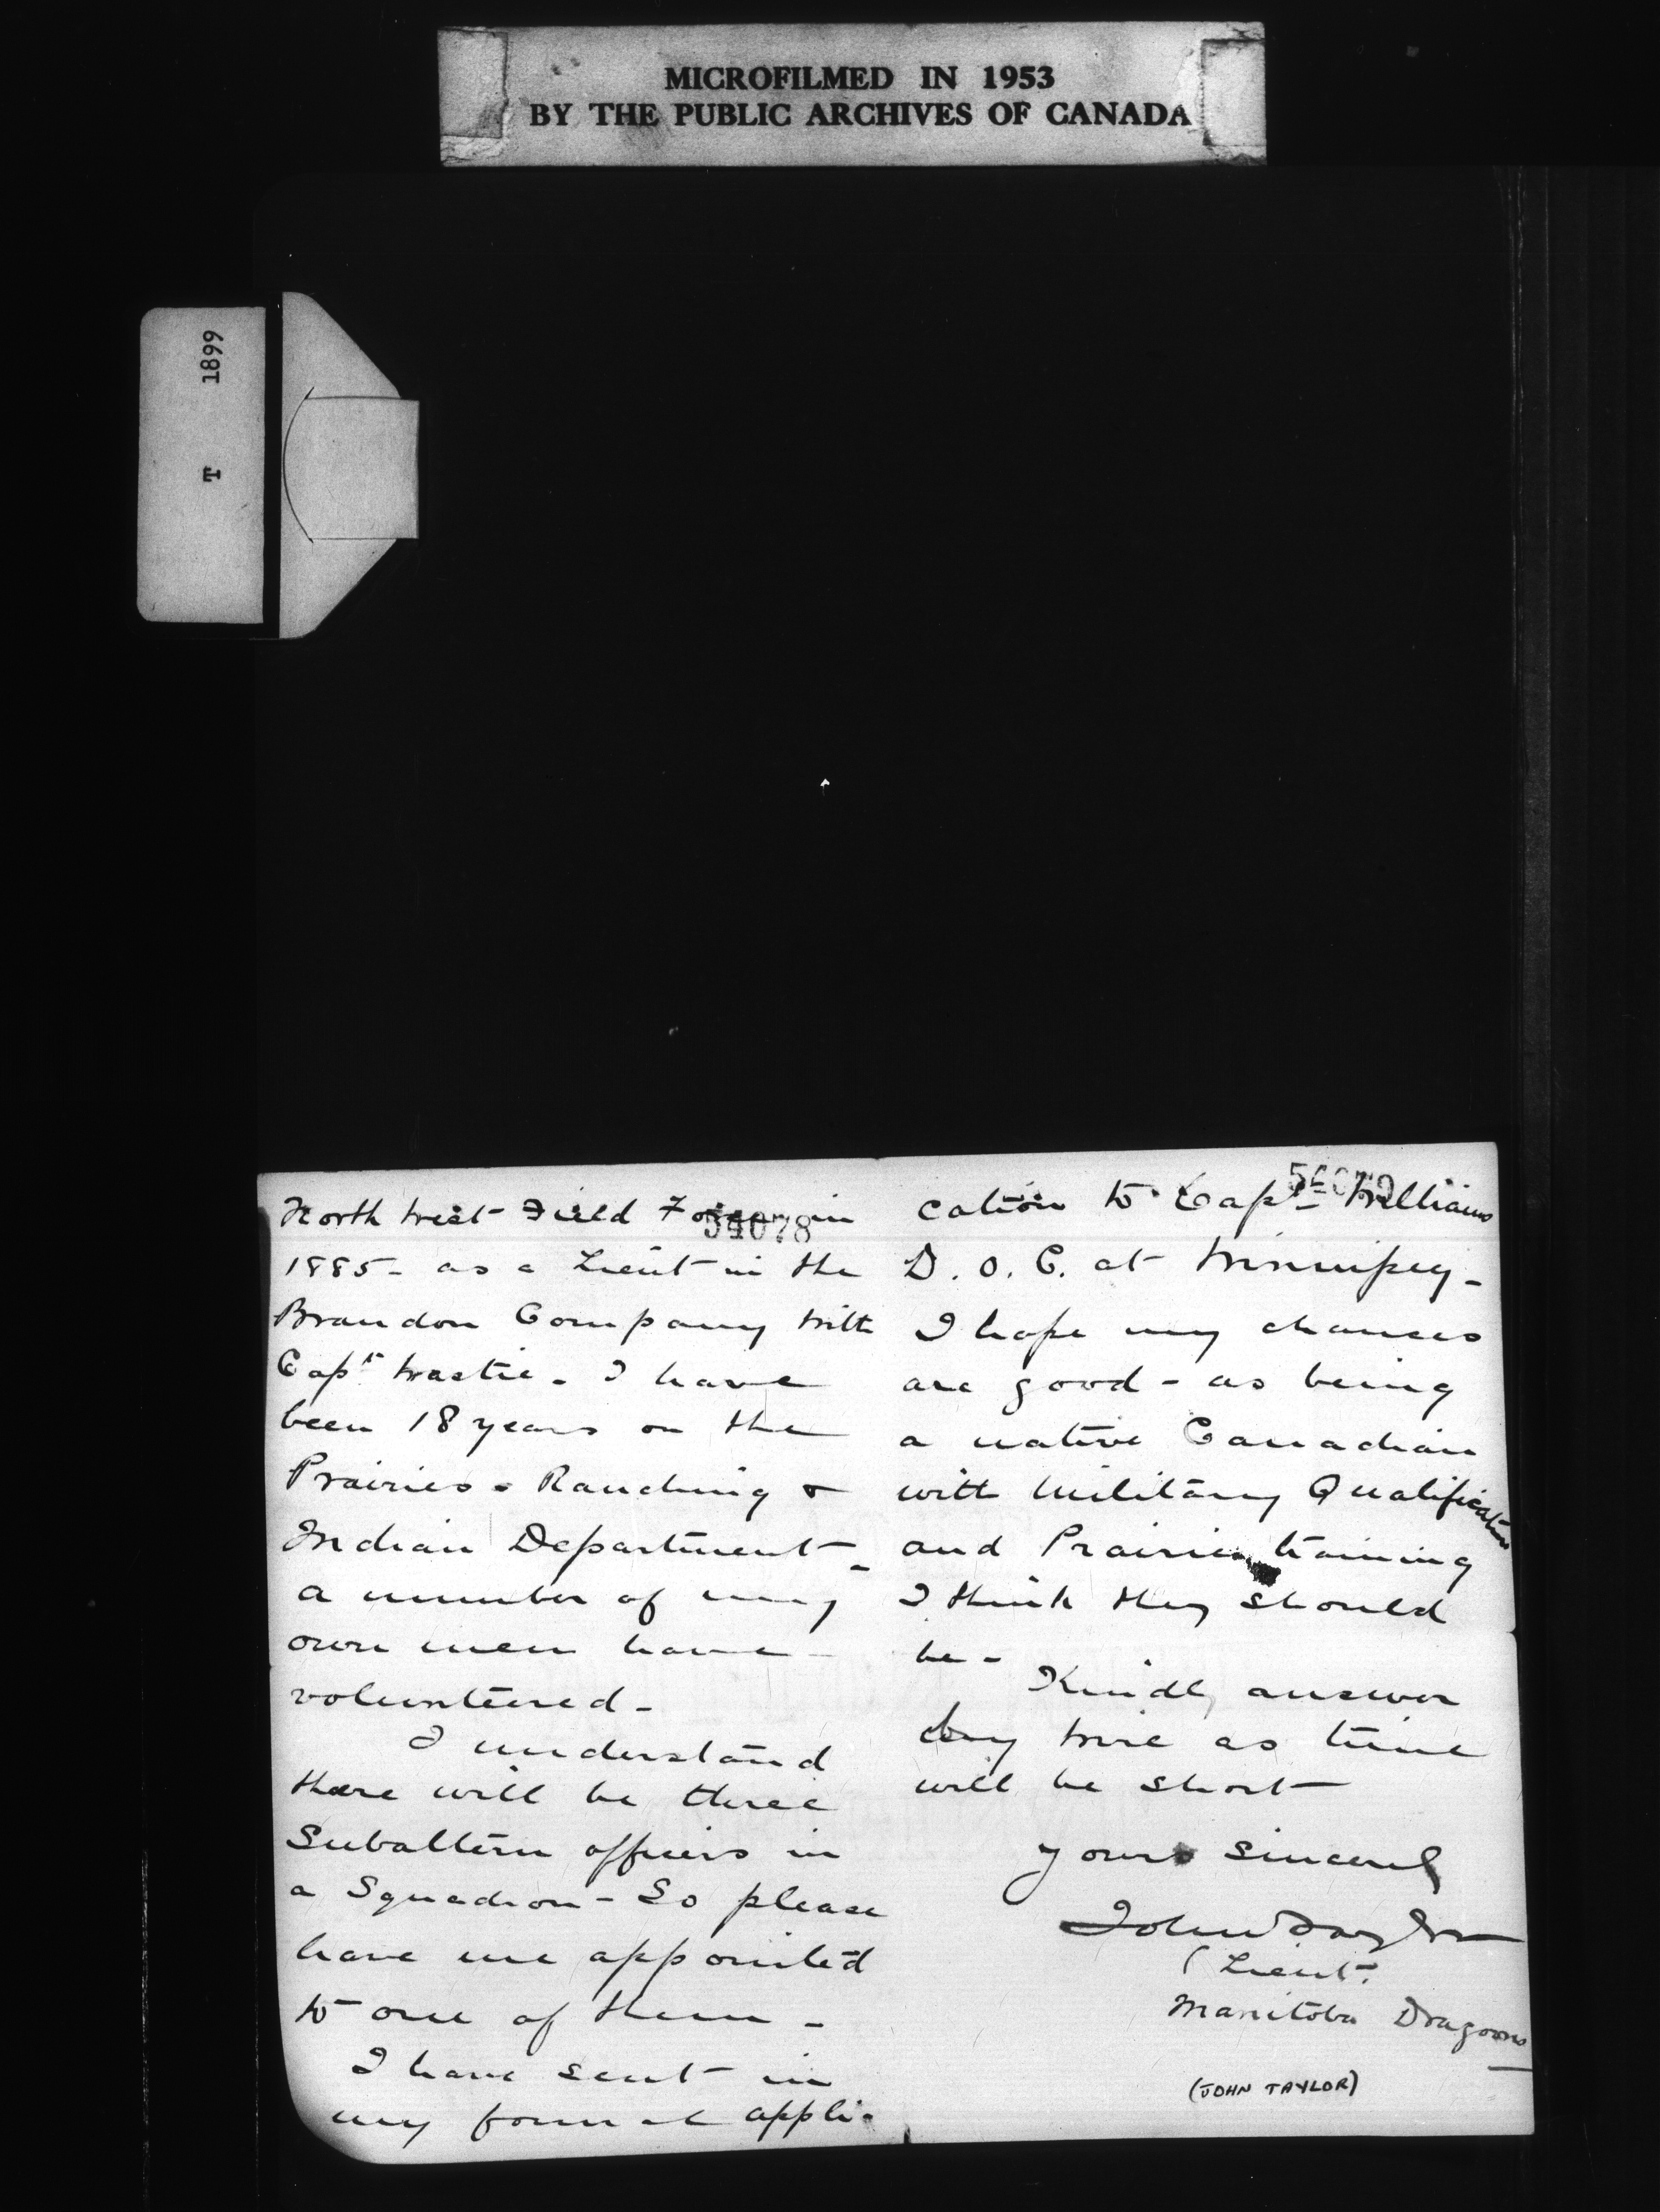 MICROFILMED IN 1953
BY THE PUBLIC ARCHIVES OF CANADA
T 1899
54078
North West Field Force in
1885 - as a Lieut in the
Brandon Company with
Capt Wastie. I have
been 18 years on the
Prairies - Ranching &
Indian Department -
a number of my
own men have -
volunteered -
I understand
there will be three
Subaltern officers in
a Squadron - So please
have me appointed
to one of them -
I have sent in
my formal appli-
54079
cation to Capt - Williams
D. O. C. at Winnipeg -
I hope my chances
are good - as being
a native Canadian
with Military Qualifications
and Prairie training
I think they should
be -
Kindly answer
by wire as time
will be short
Yours Sincerely
John Taylor
(Lieut.
Manitoba Dragoons
(JOHN TAYLOR)